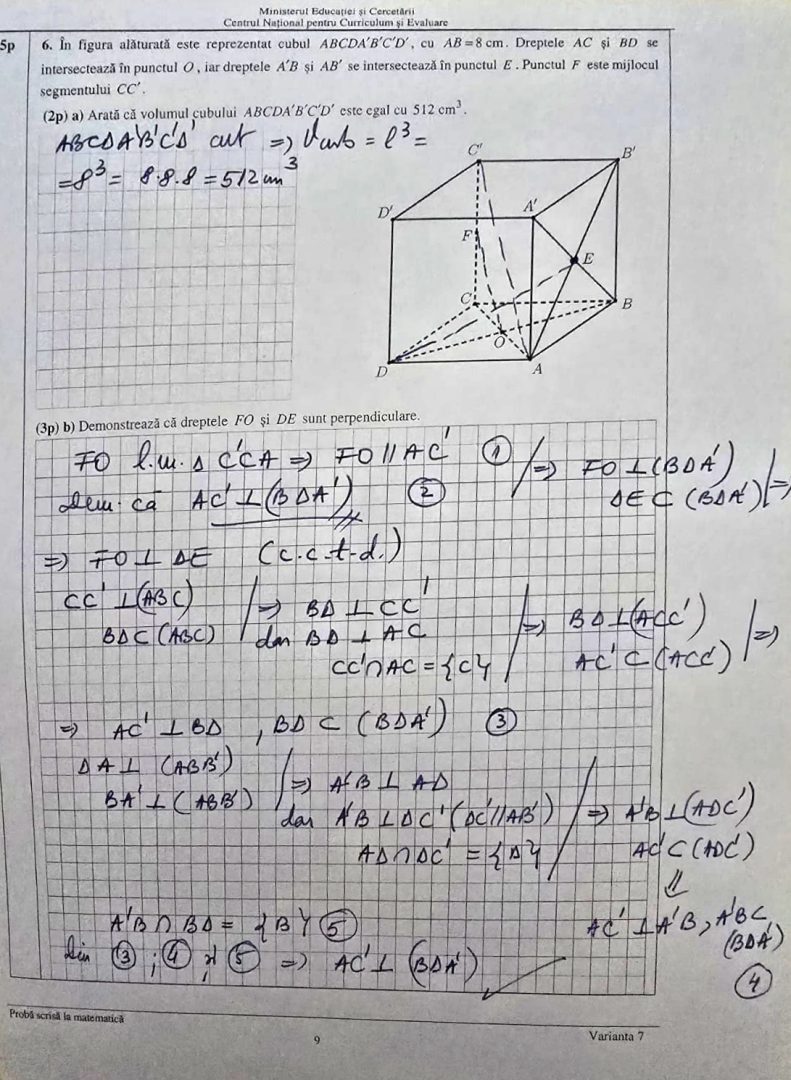 Ministerul Educației și Cercetării
Centrul Național pentru Curriculum și Evaluare
5p
6. În figura alăturată este reprezentat cubul ABCDA'B'C'D', cu AB = 8 cm. Dreptele AC și BD se
intersectează în punctul O, iar dreptele A'B și AB' se intersectează în punctul E. Punctul F este mijlocul
segmentului CC'.
(2p) a) Arată că volumul cubului ABCDA'B'C'D' este egal cu 512 cm³.
ABCDA'B'C'D' cub => Vcub = l³ =
= 8³ = 8·8·8 = 512 cm³
C'
B'
D'
A'
F
E
C
B
O
D
A
(3p) b) Demonstrează că dreptele FO și DE sunt perpendiculare.
FO l.m. Δ C'CA => FO ∥ AC' ① => FO ⊥ (BDA')
Dem. că AC' ⊥ (BDA') ② ΔE ⊂ (BDA') =>
=> FO ⊥ ΔE (c.c.t.d.)
CC' ⊥ (ABC) => BΔ ⊥ CC' => BΔ ⊥ (ACC') =>
BΔ ⊂ (ABC) dar BΔ ⊥ AC AC' ⊂ (ACC')
CC' ∩ AC = {C}
=> AC' ⊥ BΔ, BΔ ⊂ (BΔA') ③
ΔA ⊥ (ABB') => A'B ⊥ AΔ
BA' ⊥ (ABB') dar A'B ⊥ ΔC' (ΔC' ∥ AB') => A'B ⊥ (ADC')
AΔ ∩ ΔC' = {Δ} AC' ⊂ (ADC')
⇓
A'B ∩ BΔ = {B} ⑤ AC' ⊥ A'B, A'B ⊂
(BΔA')
Din ③; ④ și ⑤ => AC' ⊥ (BΔA')
④
Probă scrisă la matematică
9
Varianta 7